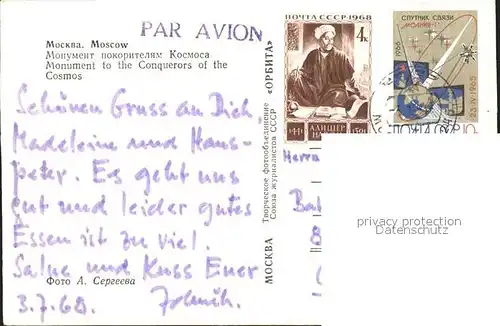 PAR AVION
Москва. Moscow
Монумент покорителям Космоса
Monument to the Conquerors of the
Cosmos
Schönen Gruss an Dich
Madeleine und Hans-
peter. Es geht uns
gut und leider gutes
Essen ist zu viel.
Salue und Kuss Euer
3.7.68.
Фото А. Сергеева
МОСКВА «ОРБИТА»
Творческое фотообъединение
Союза журналистов СССР
ПОЧТА СССР 1968
4к
1441 АЛИШЕР 1501
СПУТНИК СВЯЗИ
„МОЛНИЯ-1"
1966
23.IV.1965
ПОЧТА
10
Herrn
Ba
8
privacy protection
Datenschutz